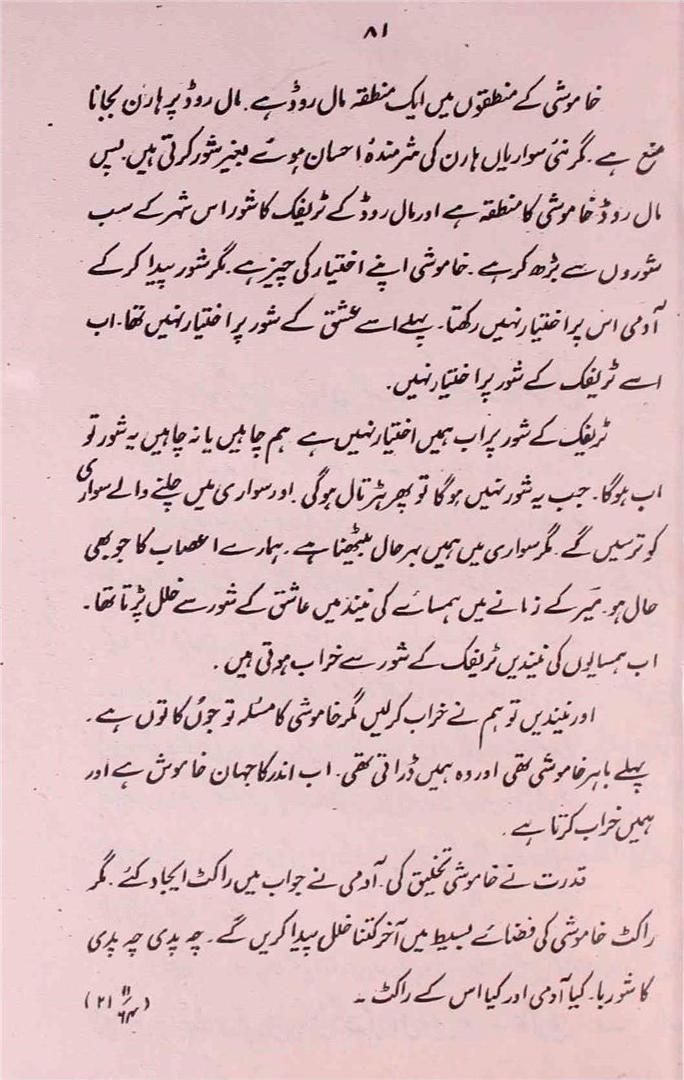 ۸۱
خاموشی کے منطقوں میں ایک منطقہ مال روڈ ہے۔ مال روڈ پر ہارن بجانا
منع ہے۔ مگر نئی سواریاں ہارن کی شرمندۂ احسان ہوئے بغیر شور کرتی ہیں۔ پس
مال روڈ خاموشی کا منطقہ ہے اور مال روڈ کے ٹریفک کا شور اس شہر کے سب
شوروں سے بڑھ کر ہے۔ خاموشی اپنے اختیار کی چیز ہے۔ مگر شور پیدا کر کے
آدمی اس پر اختیار نہیں رکھتا۔ پہلے اسے عشق کے شور پر اختیار نہیں تھا۔ اب
اسے ٹریفک کے شور پر اختیار نہیں۔
ٹریفک کے شور پر اب ہمیں اختیار نہیں ہے ہم چاہیں یا نہ چاہیں یہ شور تو
اب ہوگا۔ جب یہ شور نہیں ہوگا تو پھر ہڑتال ہوگی۔ اور سواری میں چلنے والے سواری
کو ترسیں گے۔ مگر سواری میں ہمیں بہرحال بیٹھنا ہے۔ ہمارے اعصاب کا جو بھی
حال ہو۔ میرؔ کے زمانے میں ہمسائے کی نیند میں عاشق کے شور سے خلل پڑتا تھا۔
اب ہمسایوں کی نیندیں ٹریفک کے شور سے خراب ہوتی ہیں۔
اور نیندیں تو ہم نے خراب کر لیں مگر خاموشی کا مسئلہ تو جوں کا توں ہے۔
پہلے باہر خاموشی تھی اور وہ ہمیں ڈراتی تھی۔ اب اندر کا جہان خاموش ہے اور
ہمیں خراب کرتا ہے۔
قدرت نے خاموشی تخلیق کی۔ آدمی نے جواب میں راکٹ ایجاد کئے۔ مگر
راکٹ خاموشی کی فضائے بسیط میں آخر کتنا خلل پیدا کریں گے۔ چہ پدی چہ پدی
کا شوربا۔ کیا آدمی اور کیا اس کے راکٹ۔۔
(۲۱ ۱۱/۶۴)